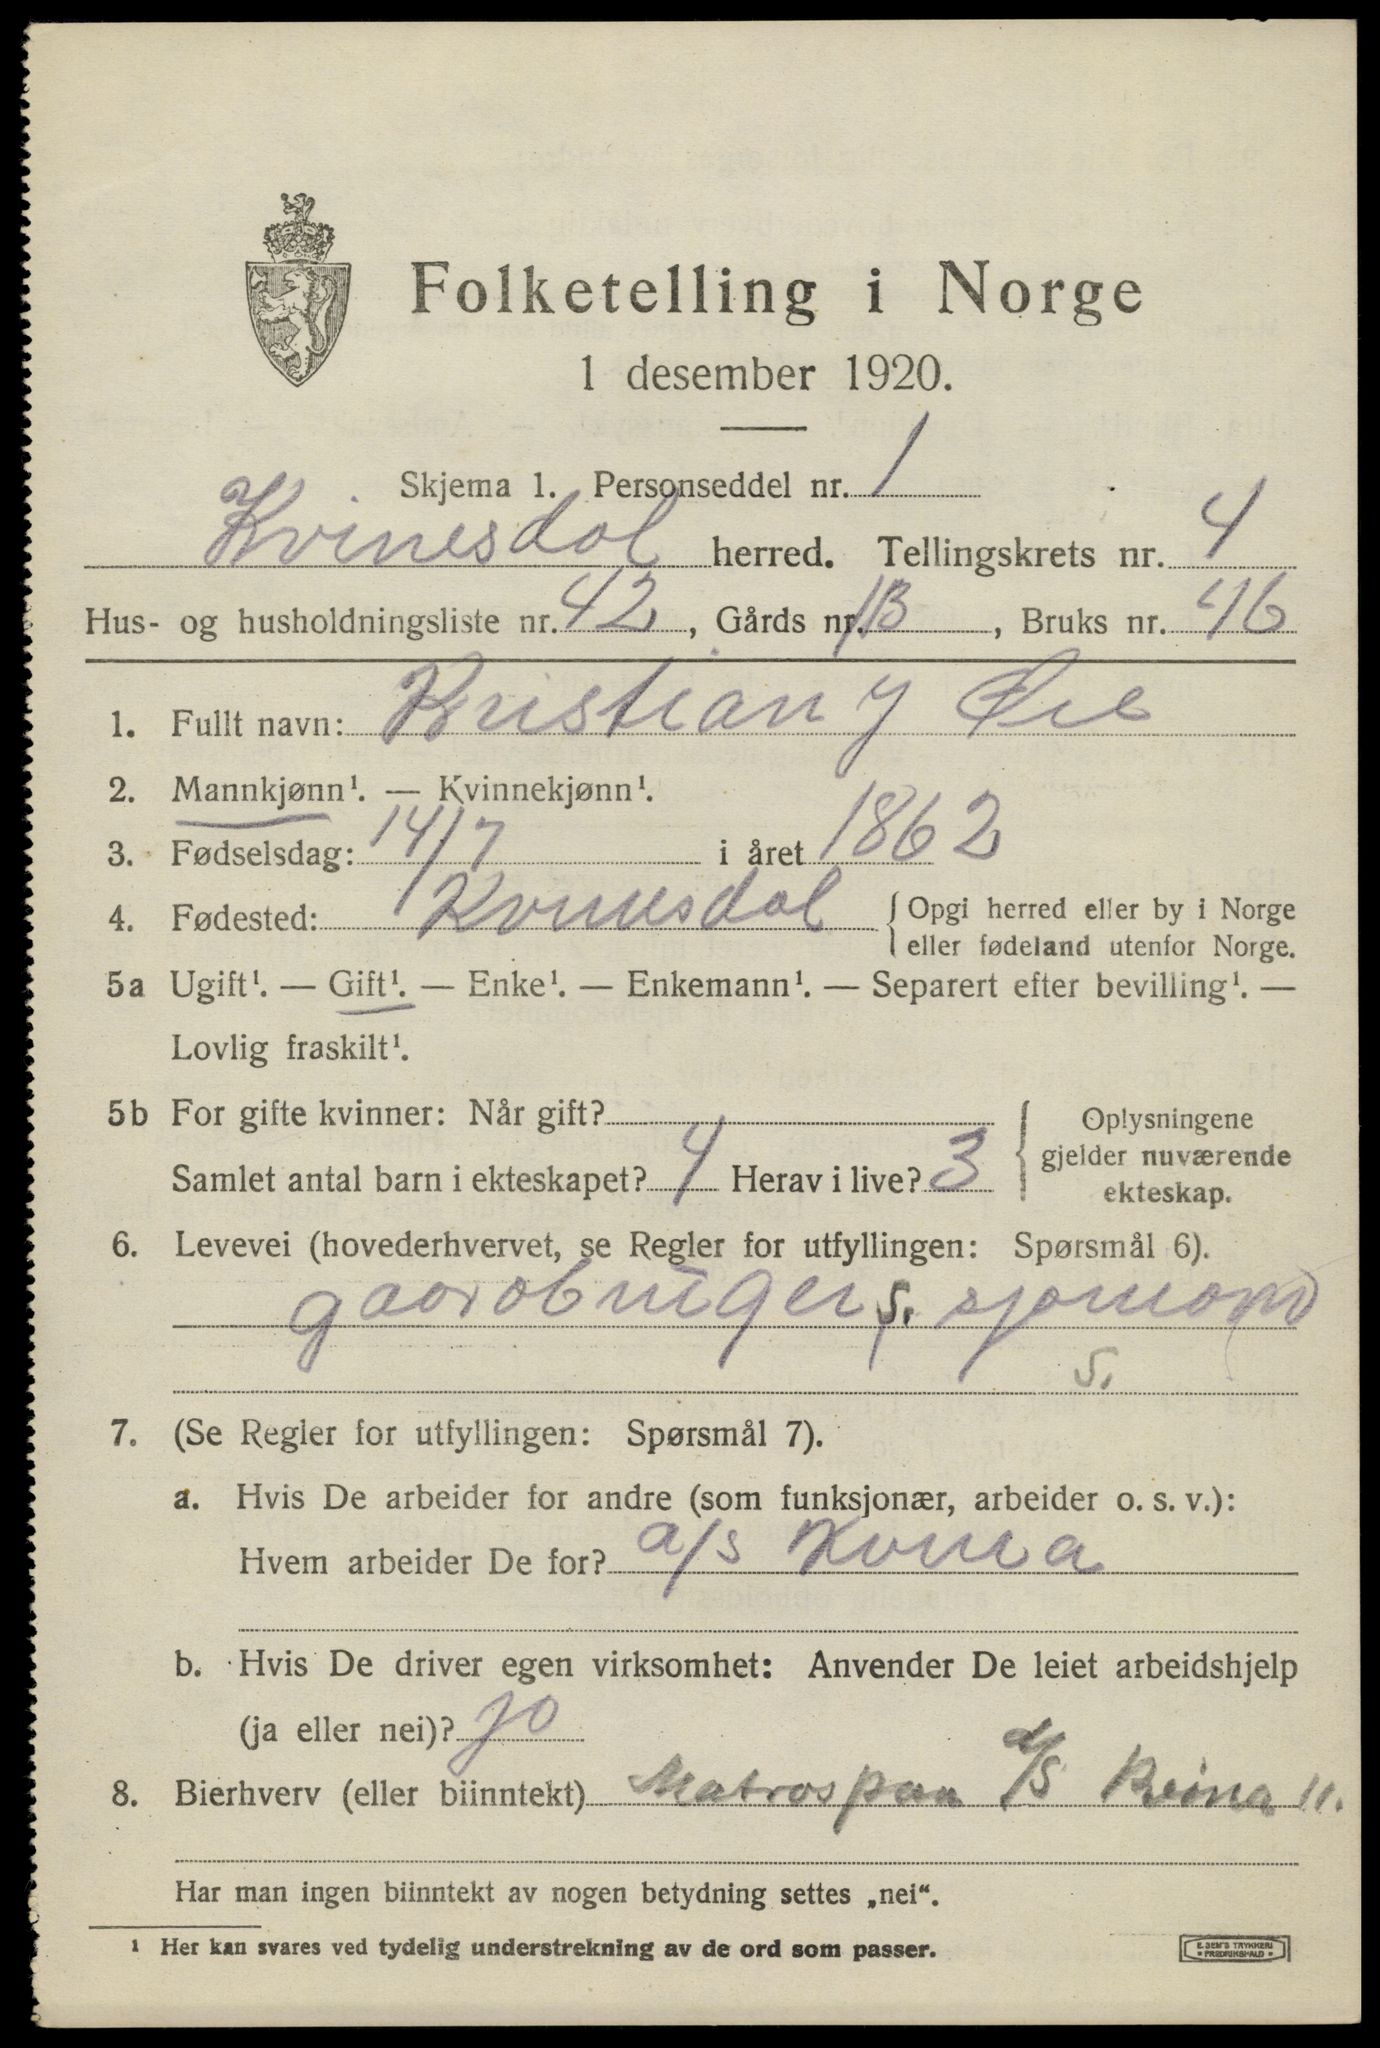 Folketelling i Norge
1 desember 1920.
Skjema 1. Personseddel nr. 1
Kvinesdal herred. Tellingskrets nr. 4
Hus- og husholdningsliste nr. 42, Gårds nr. 113, Bruks nr. 46
1. Fullt navn: Kristian J Øie
2. Mannkjønn¹. — Kvinnekjønn¹.
3. Fødselsdag: 14/7 i året 1862
4. Fødested: Kvinesdal {Opgi herred eller by i Norge
eller fødeland utenfor Norge.
5a Ugift¹. — Gift¹. — Enke¹. — Enkemann¹. — Separert efter bevilling¹. —
Lovlig fraskilt¹.
5b For gifte kvinner: Når gift?
Samlet antal barn i ekteskapet? 4 Herav i live? 3
{Oplysningene
gjelder nuværende
ekteskap.
6. Levevei (hovederhvervet, se Regler for utfyllingen: Spørsmål 6).
gaardbruger s. sjømand
s.
7. (Se Regler for utfyllingen: Spørsmål 7).
a. Hvis De arbeider for andre (som funksjonær, arbeider o. s. v.):
Hvem arbeider De for? a/s Kvina
b. Hvis De driver egen virksomhet: Anvender De leiet arbeidshjelp
(ja eller nei)? ja
8. Bierhverv (eller biinntekt) Matros paa d/s 11.
Har man ingen biinntekt av nogen betydning settes „nei“.
¹ Her kan svares ved tydelig understrekning av de ord som passer.
E. SEM'S TRYKKERI
FREDRIKSHALD